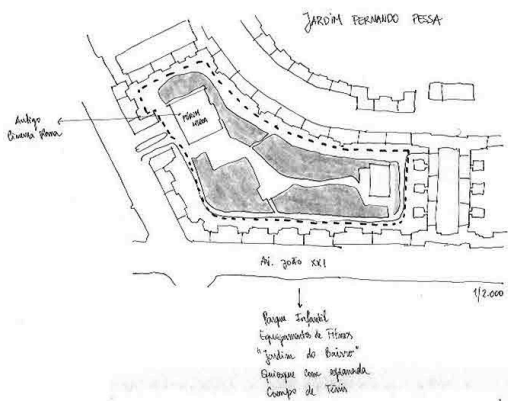 JARDIM FERNANDO PESSA
Antigo
Cinema Roma
FÓRUM
LISBOA
Av. João XXI
1/2.000
Parque Infantil
Equipamentos de Fitness
"Jardim do Bairro"
Quiosque com esplanada
Campo de Ténis